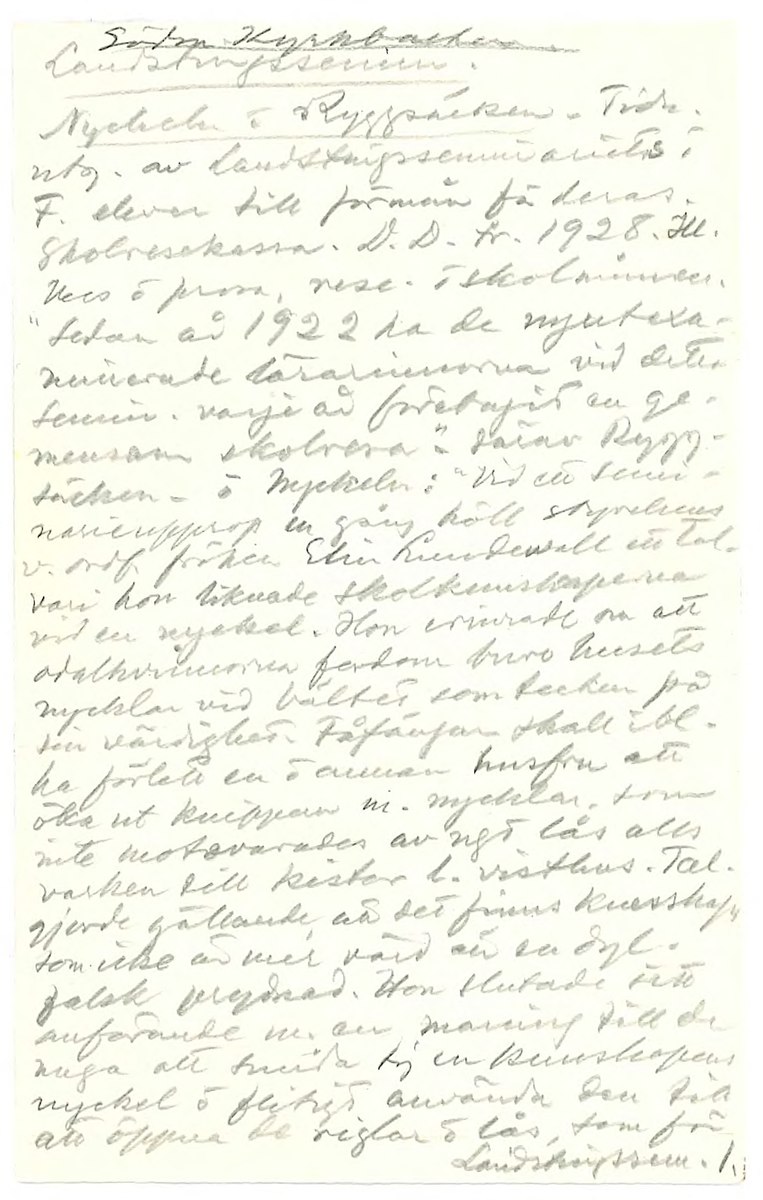 Södra Kyrkbacken
Landstingssemin.
Nyckeln o Ryggsäcken - Tidn.
utg. av landstingsseminariets i
F. elever till förmån för deras
Skolresekassa. D.D. tr. 1928. Ill.
Vers o prosa, rese- o skolminnen.
"Sedan år 1922 ha de nyutexa-
minerade lärarinnorna vid detta
semin. varje år företagit en ge-
mensam skolresa" - därav Rygg-
säcken - o Nyckeln: "Vid ett semi-
narieupprop en gång höll styrelsens
v. ordf. fröken Elin Lundewall ett tal
vari hon liknade skolkunskaperna
vid en nyckel. Hon erinrade om att
odalkvinnorna fordom buro husets
nycklar vid bältet som tecken på
sin värdighet. Fåfängan skall ibl.
ha förlett en o annan husfru att
öka ut knippan m. nycklar, som
inte motsvarades av ngt lås alls
varken till kistor l. visthus. Tal.
gjorde gällande, att det finns kunskap,
som icke är mer värd än en dyl.
falsk prydnad. Hon slutade sitt
anförande m. en maning till de
unga att smida sig en kunskapens
nyckel o flitigt använda den till
att öppna de riglar o lås, som för
Landstingssem. 1.